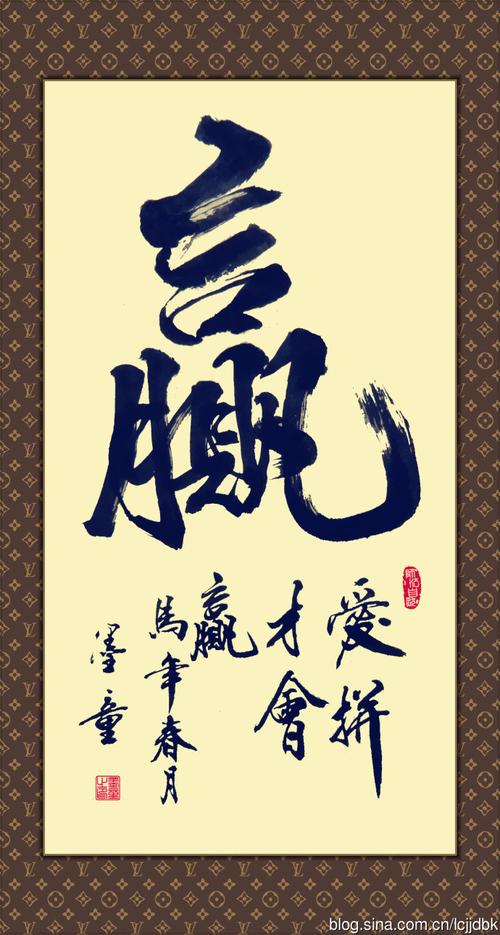 赢
爱拼
才會
赢
馬年春月
墨童
blog.sina.com.cn/lcjjdbk